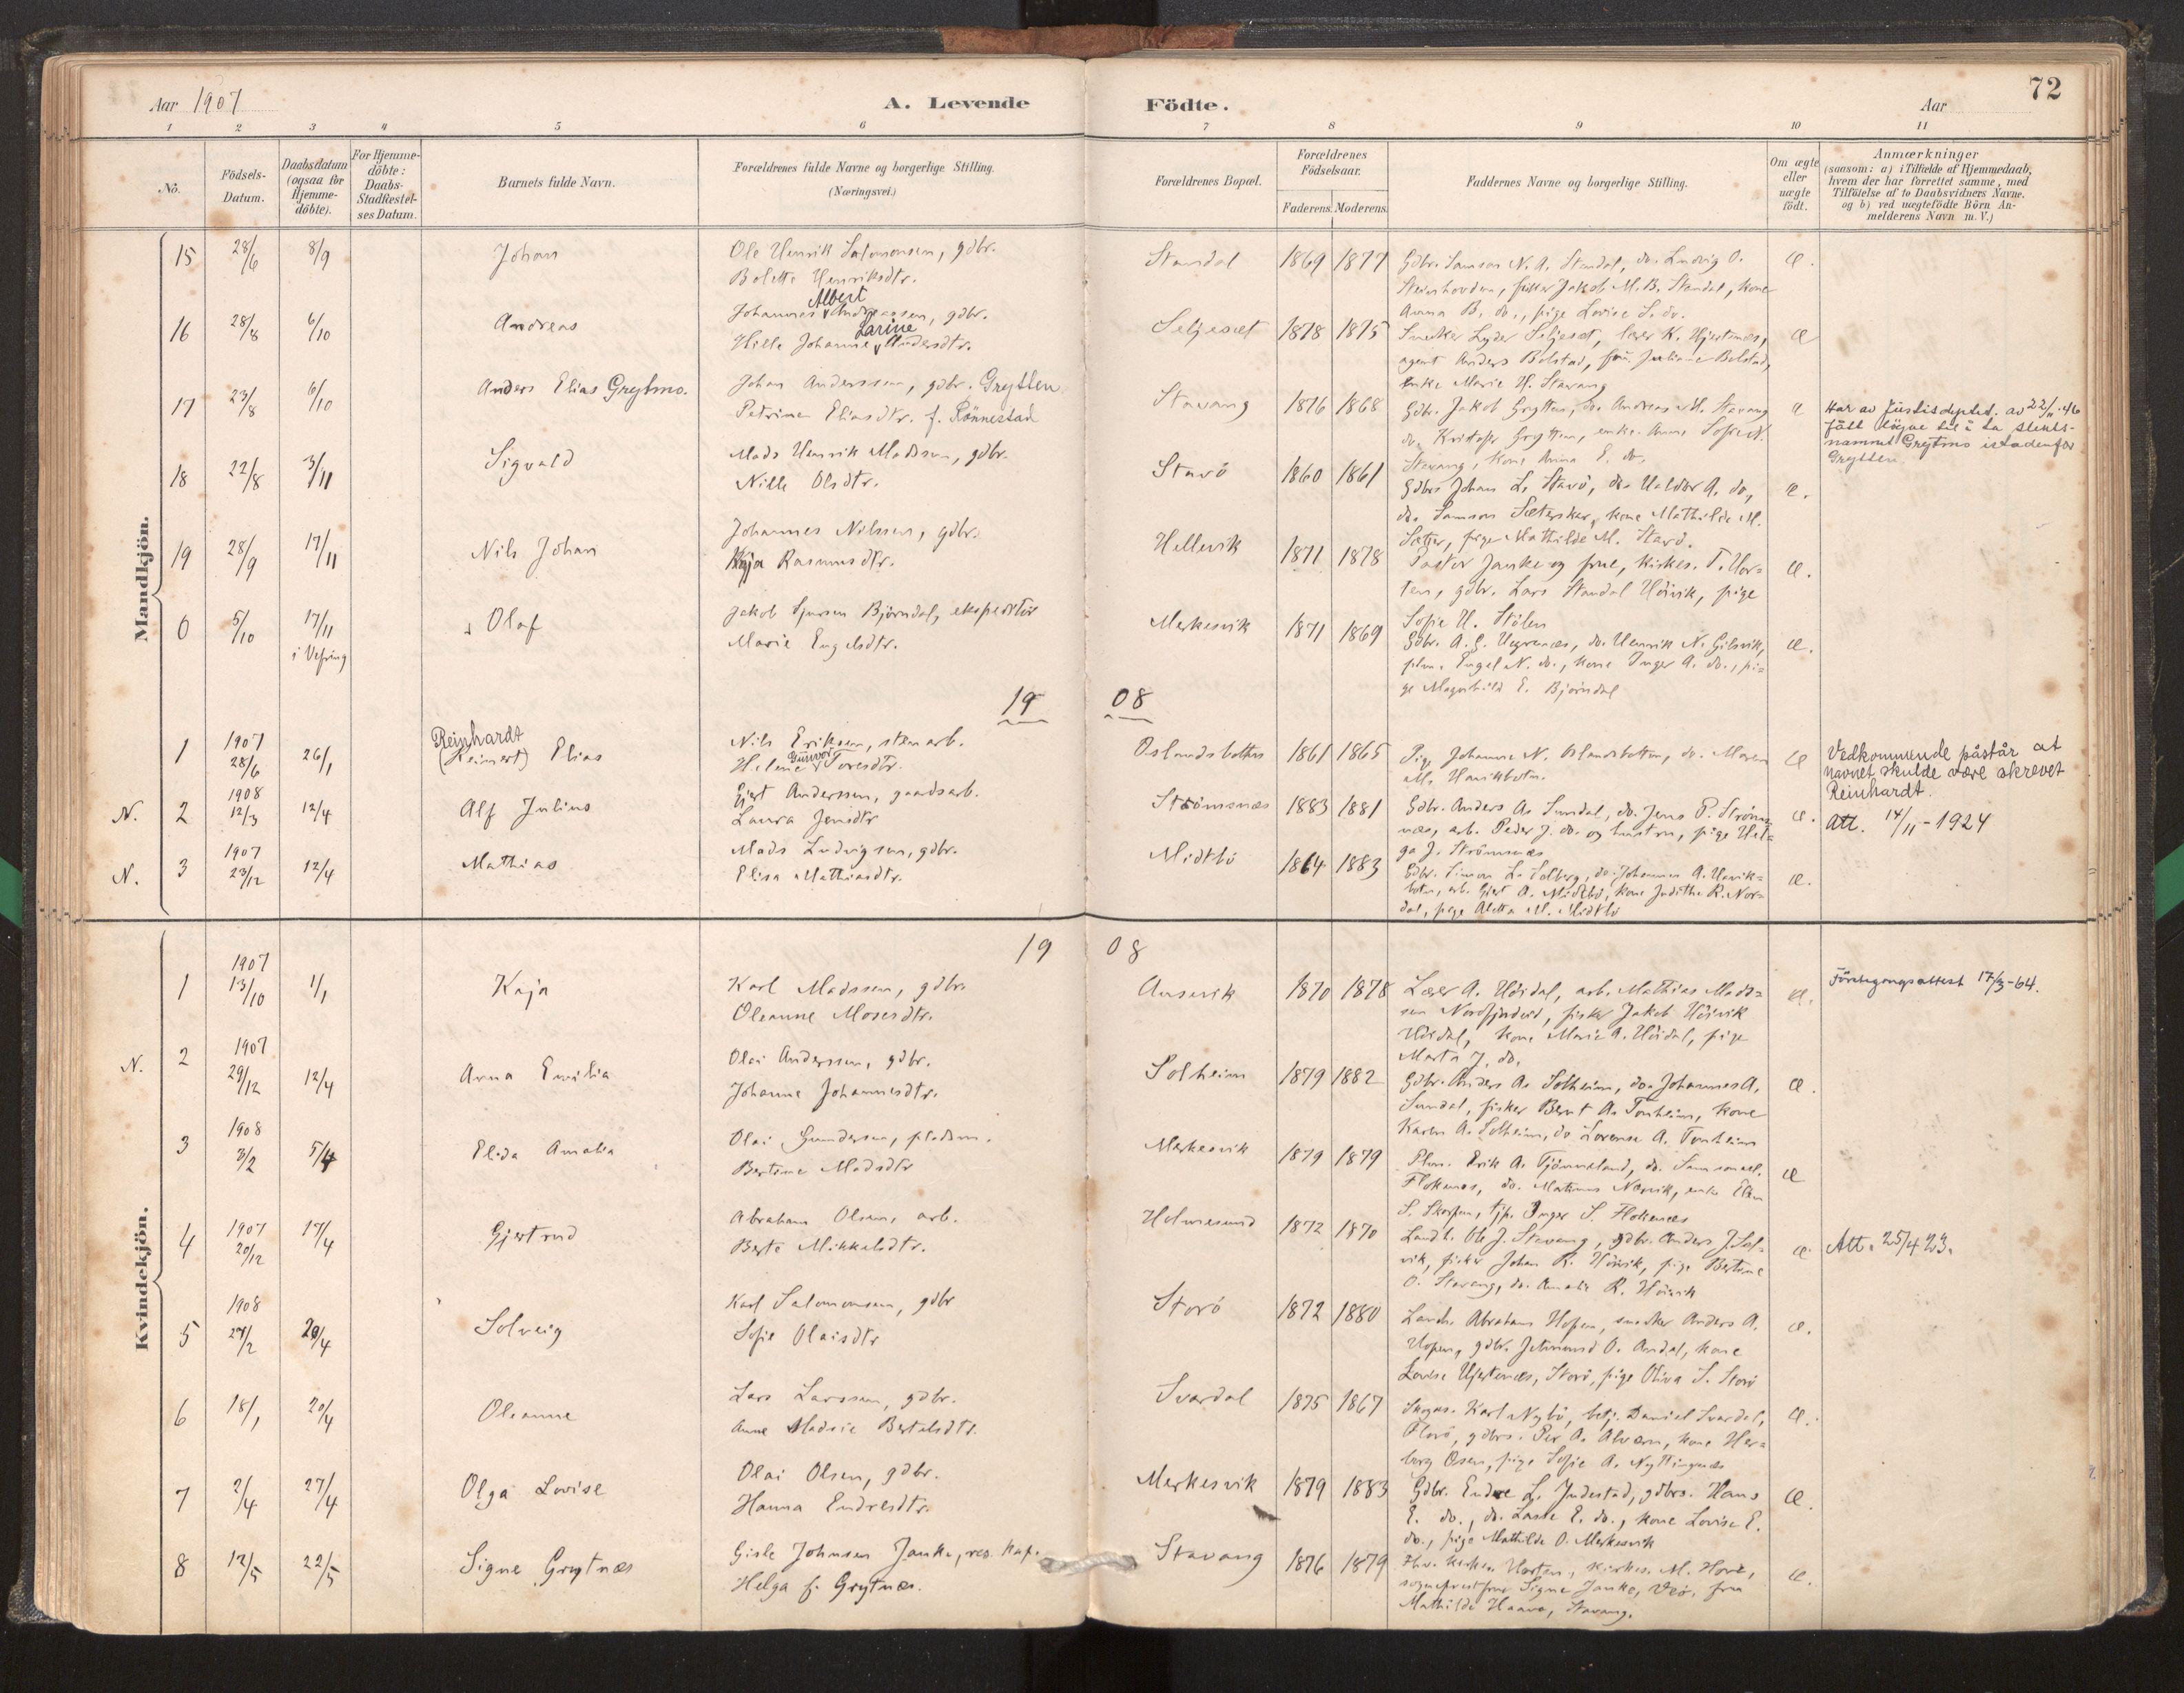 72
Aar 1907 A. Levende Födte. Aar
1 2 3 4 5 6 7 8 9 10 11
Nö.
Födsels-Datum.
Daabsdatum (ogsaa för Hjemme-döbte).
For Hjemme-döbte: Daabs-Stadfæstel-ses Datum.
Barnets fulde Navn.
Forældrenes fulde Navne og borgerlige Stilling.
(Næringsvei.)
Forældrenes Bopæl.
Forældrenes Födselsaar.
Faderens. Moderens.
Faddernes Navne og borgerlige Stilling.
Om ægte eller uægte födt.
Anmærkninger
(saasom: a) i Tilfælde af Hjemmedaab,
hvem der har forrettet samme, med
Tilföielse af to Daabsvidners Navne.
og b) ved uægtefödte Börn An-
melderens Navn m. V.)
Mandkjön.
15 28/6 8/9 Johan Ole Henrik Salomonsen, gdbr.
Bolette Henriksdtr.
Standal 1869 1877 Gdbr. Samson N. A. Standal, do. Ludvig O.
fisker Jakob M. B. Standal, kone
Anna B. do., pige Lovise S. do.
æ.
16 28/8 6/10 Andreas Johannes Albert Andreassen, gdbr.
Hille Johanne Larine Andersdtr.
Seljeset 1878 1875 Snedker Lyder Seljeset, lærer K. Hjertenæs,
agent Anders Bolstad, fru Juliane Bolstad,
enke Marie H. Stavang
æ
17 23/8 6/10 Anders Elias Grytmo. Johan Anderssen, gdbr. Grytten
Petrine Eliasdtr. f. Rönnestad
Stavang 1876 1868 Gdbr. Jakob Grytten, do. Andreas M. Stavang
do. Kristofer Grytten, enke Anne Sofie N.
Stavang, kone Anna E. do.
æ
Har av Justisdepted. av 22/11-46
fått löyve til å ta slekts-
namnet Grytmo istadenfor
Grytten.
18 22/8 3/11 Sigvald Mads Henrik Madssen, gdbr.
Nille Olsdtr.
Stavö 1860 1861 Gdbr. Johan L. Stavö, do. Haldor A. do,
do. Samson Sæterskar, kone Mathilde M.
Sætren, pige Mathilde M. Stavö.
æ.
19 28/9 17/11 Nils Johan Johannes Nilssen, gdbr.
Kaja Rasmusdtr.
Hellevik 1871 1878 Pastor Janke og frue, kirkes. T. Hor-
ten, gdbr. Lars Standal Höivik, pige
Sofie H. Stölen
æ.
0 5/10 17/11
i Vefring
Olaf Jakob Sjursen Björndal, ekspeditör
Marie Engelsdtr.
Merkesvik 1871 1869 Gdbr. A. G. do. Henrik N. Gilsvik,
plm. Engel N. do., kone Inger A. do., pi-
ge Magnhild E. Björndal
æ.
19 08
1 1907 28/6 26/1 Reinhardt (Reinert) Elias Nils Eriksen, stenarb.
Helene Gunvor Toresdtr.
Oslandsbotten 1861 1865 Pige Johanne N. Oslandsbotten, do. Maren
M. Hærikbotn.
æ
Vedkommende påstår at
navnet skulde være skrevet
Reinhardt.
Att. 14/11-1924
N. 2 1908 12/3 12/4 Alf Julius Gjert Anderssen, gaardsarb.
Laura Jensdtr
Strömsnæs 1883 1881 Gdbr. Anders A. Sundal, do. Jens P. Ströms-
næs, arb. Peder J. do. og hustru, pige Hel-
ga J. Strömsnæs
æ.
N. 3 1907 23/12 12/4 Mathias Mads Ludvigsen, gdbr.
Elisa Mathiasdtr.
Midtbö 1864 1883 Gdbr. Simon L. Solberg, do. Johannes A. Hærik-
botn, arb. Gjert O. Midtbö, kone Judithe R. Nor-
dal, pige Aletta M. Midtbö
æ.
Kvindekjön.
19 08
1 1907 13/10 1/1 Kaja Karl Madssen, gdbr.
Oleanne Mosesdtr.
Ausevik 1870 1878 Lærer A. Höidal, arb. Mathias Mads-
sen Nordfjordeid, fisker Jakob Höivik
Höidal, kone Marie A. Höidal, pige
Marta J. do.
æ.
Förstegangsattest 17/3-64.
N. 2 1907 29/12 12/4 Anna Emilia Olai Anderssen, gdbr.
Johanne Johannesdtr.
Solheim 1879 1882 Gdbr. Anders A. Solheim, do. Johannes A.
Sundal, fisker Bernt A. Tonheim, kone
Karen A. Solheim, do Lorense A. Tonheim
æ.
3 1908 3/2 5/4 Elida Amalia Olai Gundersen, pladsm.
Bertine Madsdtr
Merkesvik 1879 1879 Plm. Erik A. Tjönneland, do. Samson
Flokenes, do. Martinus Nærvik, enke Elen
S. Skorpen, tjp. Inger S. Flokenæs
æ
4 1907 20/12 17/4 Gjertrud Abraham Olsen, arb.
Berte Mikkelsdtr.
Holmesund 1872 1870 Landh. Ole J. Stavang, gdbr. Anders J. Sol-
vik, fisker Johan R. Höivik, pige Bertine
O. Stavang, do. Amalie R. Höivik
æ
Att. 25/4 23.
5 1908 27/2 20/4 Solveig Karl Salomonsen, gdbr
Sofie Olaisdtr
Storö 1872 1880 Landh. Abraham Hopen, snedker Anders A.
Hopen, gdbr. Jetmund O. Andal, kone
Lovise Hjertenæs, Storö, pige Oliva S. Storö
æ.
6 18/1 20/4 Oleanne Lars Larssen, gdbr.
Anne Madsie Bertelsdtr.
Svardal 1875 1867 Karl Nybö, betj. Daniel Svardal,
Florö, gdbrs. Per A. Alværn, kone Her-
borg Osen, pige Sofie A. Nyttingnæs
æ.
7 2/4 27/4 Olga Lovise Olai Olsen, gdbr.
Hanna Endresdtr.
Merkesvik 1879 1883 Gdbr. Endre L. Indestad, gdbrs. Hans
E. do., do. Lasse E. do., kone Lovise E.
do., pige Mathilde O. Merkesvik
æ.
8 12/5 22/5 Signe Grytnæs Gisle Johnson Janke, res. kap.
Helga f. Grytnæs.
Stavang 1876 1879 kirkes. Horten, kirkes. M. Hove,
sogneprestfrue Signe Janke, Veö, frue
Mathilde Haave, Stavang.
æ.